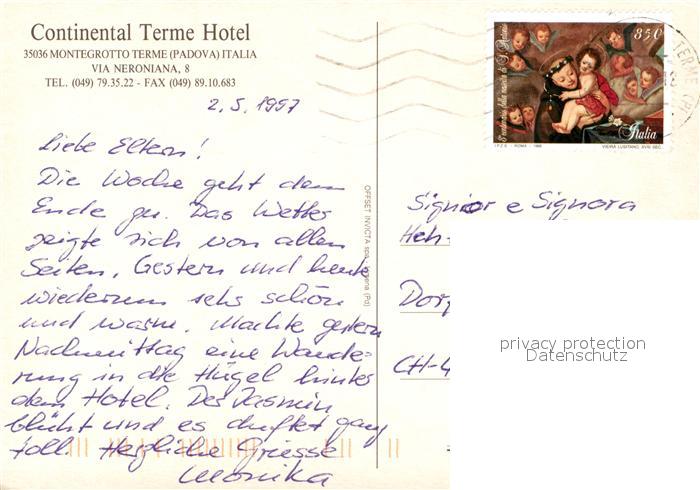 Continental Terme Hotel
35036 MONTEGROTTO TERME (PADOVA) ITALIA
VIA NERONIANA, 8
TEL. (049) 79.35.22 - FAX (049) 89.10.683
2.5.1997
Liebe Eltern!
Die Woche geht dem
Ende zu. Das Wetter
zeigte sich von allen
Seiten. Gestern und heute
wiederum sehr schön
und warm. Machte gestern
Nachmittag eine Wande-
rung in die Hügel hinter
dem Hotel. Der Jasmin
blüht und es duftet ganz
toll. Herzliche Grüsse
Monika
OFFSET INVICTA spa
850
Italia
I.P.Z.S. - ROMA - 1995
TERME
Signor e Signora
Heh
Dorf
CH-4
privacy protection
Datenschutz